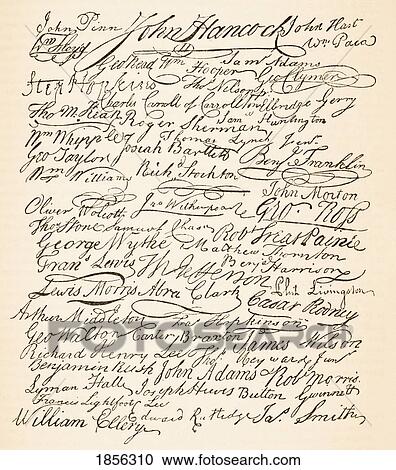 John Penn John Hancock John Hart
Wm Floyd Wm Paca
Geo Read Wm Hooper Sam Adams
Step Hopkins Tho Nelson jr Geo Clymer
Charles Carroll of Carrollton Elbridge Gerry
Tho M:Kean Roger Sherman Sam Huntington
Wm Whipple Thomas Lynch Junr.
Geo Taylor Josiah Bartlett Benj Franklin
Wm Williams Richd Stockton
John Morton
Oliver Wolcott Jno Witherspoon Geo. Ross
Thos Stone Samuel Chase Robt Treat Paine
George Wythe Matthew Thornton
Frans. Lewis Th Jefferson Benj Harrison
Lewis Morris Abra Clark Phil. Livingston
Cæsar Rodney
Arthur Middleton Fras Hopkinson
FOTOSEARCH
Geo Walton Carter Braxton James Wilson
Richard Henry Lee Thos Heyward Junr
Benjamin Rush John Adams Robt Morris
Lyman Hall Joseph Hewes Button Gwinnett
Francis Lightfoot Lee
William Ellery Edward Rutledge Jas. Smith
1856310 www.fotosearch.com